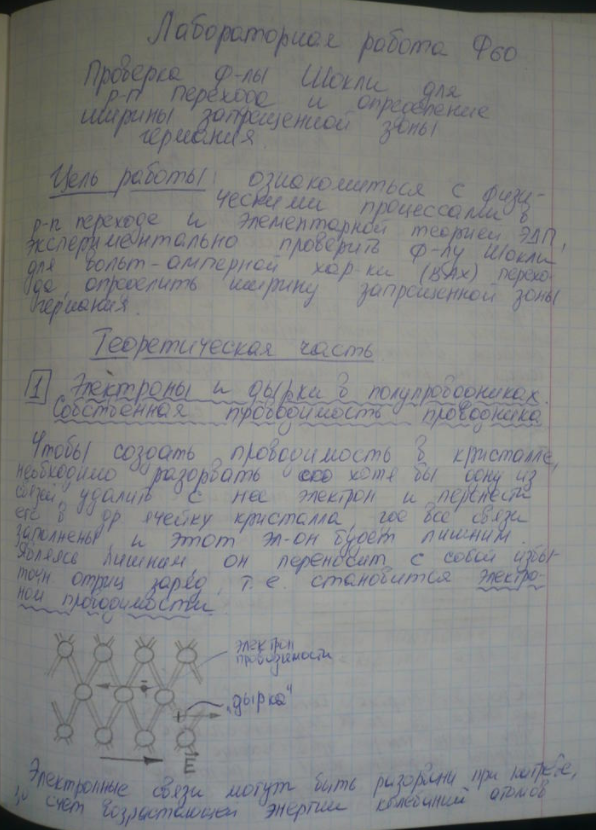 Лабораторная работа Ф60
Проверка ф-лы Шокли для
р-п перехода и определение
ширины запрещенной зоны
германия.
Цель работы: ознакомиться с физи-
ческими процессами в
р-п переходе и элементарной теорией ЭДП,
экспериментально проверить ф-лу Шокли
для вольт-амперной хар-ки (ВАХ) перехо-
да, определить ширину запрещенной зоны
германия.
Теоретическая часть
1 Электроны и дырки в полупроводниках.
Собственная проводимость проводника
Чтобы создать проводимость в кристалле,
необходимо разорвать хотя бы одну из
связей, удалить с нее электрон и перенести
его в др ячейку кристалла, где все связи
заполнены и этот эл-он будет лишним.
Являясь лишним он переносит с собой избы-
точн отриц заряд, т.е. становится электро-
ном проводимости
электрон
проводимости
"дырка"
E
Электронные связи могут быть разорваны при нагреве,
за счет возрастающей энергии колебаний атомов